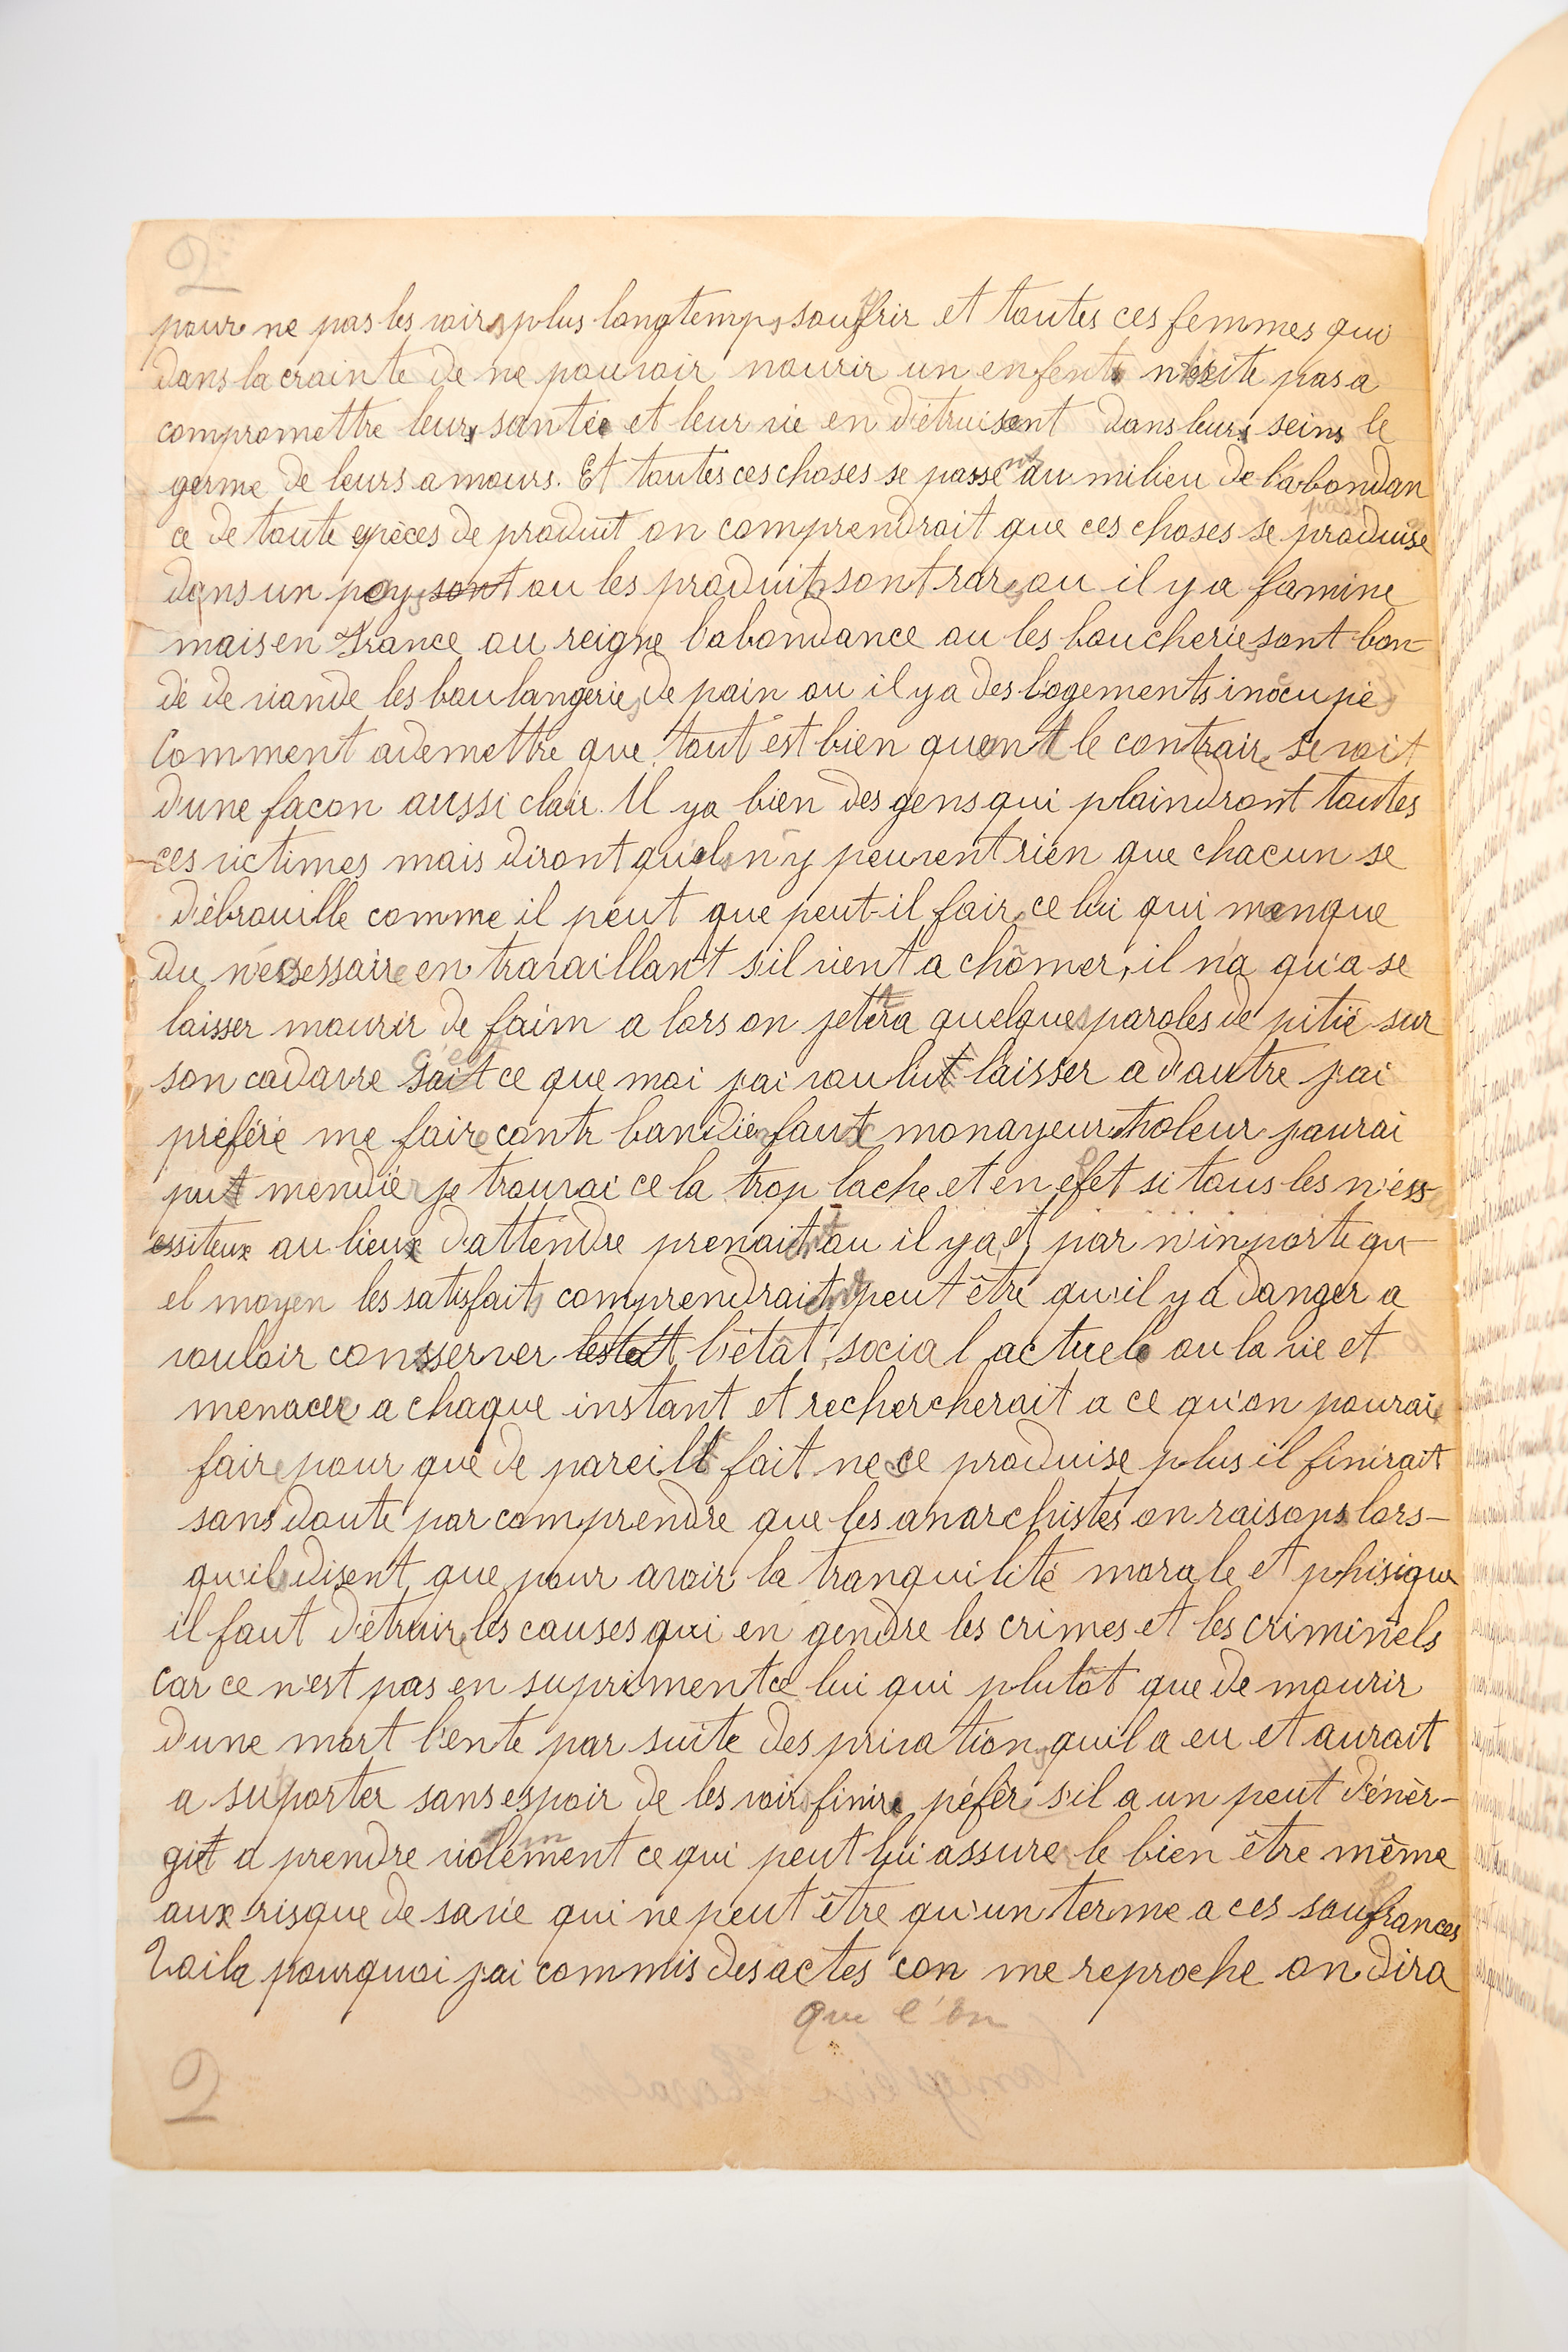 2
pour ne pas les voirs plus longtemps souffrir et toutes ces femmes qui
dans la crainte de ne pouvoir nourir un enfent n'hésite pas a
compromettre leurs santée et leur vie en d'étruisant dans leurs seins le
germe de leurs amours. Et toutes ces choses se passent au milieu de l'abondan
ce de toute espèces de produit on comprendrait que ces choses se produise
dans un pays sont ou les produits sont rares ou il y a famine
mais en France ou reigne l'abondance ou les boucheries sont bon-
dé de viande les boulangeries de pain ou il y a des logements inocupiés
Comment ademettre que tout est bien quant le contraire se voit
d'une facon aussi clair. Il ya bien des gens qui plaindront toutes
ces victimes mais diront qu'ils n'y peuvent rien que chacun se
d'ébrouille comme il peut que peut-il faire ce lui qui manque
du n'écessaire en travaillant s'il vient a chômer, il n'a qu'a se
laisser mourir de faim a lors on jetera quelques paroles de pitié sur
son cadavre c'est ce que moi j'ai voulut laisser a d'autre j'ai
préféré me faire contrbandier faux monayeur voleur j'aurai
put mendier je trouvai ce la trop lache et en effet si tous les n'éss
essiteux au lieux d'attendre prenait ou il y a et par n'inporte qu-
el moyen les satisfaits comprendrait peut être qu'il y a danger a
vouloir consserver lestat l'état social actuele ou la vie et
menacer a chaque instant et rechercherait a ce qu'on pourait
faire pour que de pareill fait ne ce produise plus il finirait
sans doute par comprendre que les anarchistes on raisons lors-
qu'ils disent que pour avoir la tranquilité morale et phisique
il faut d'étruire les causes qui en gendre les crimes et les criminels
car ce n'est pas en supriment ce lui qui plutôt que de mourir
d'une mort l'ente par suite des privations qu'il a eu et aurait
a suporter sans espoir de les voir finire péféré s'il a un peut d'énèr-
giet a prendre violemment ce qui peut lui assure le bien être même
aux risque de savie qui ne peut être qu'un terme a ces souffrances
Voila pourquoi j'ai commis des actes con me reproche on dira
que l'on
2